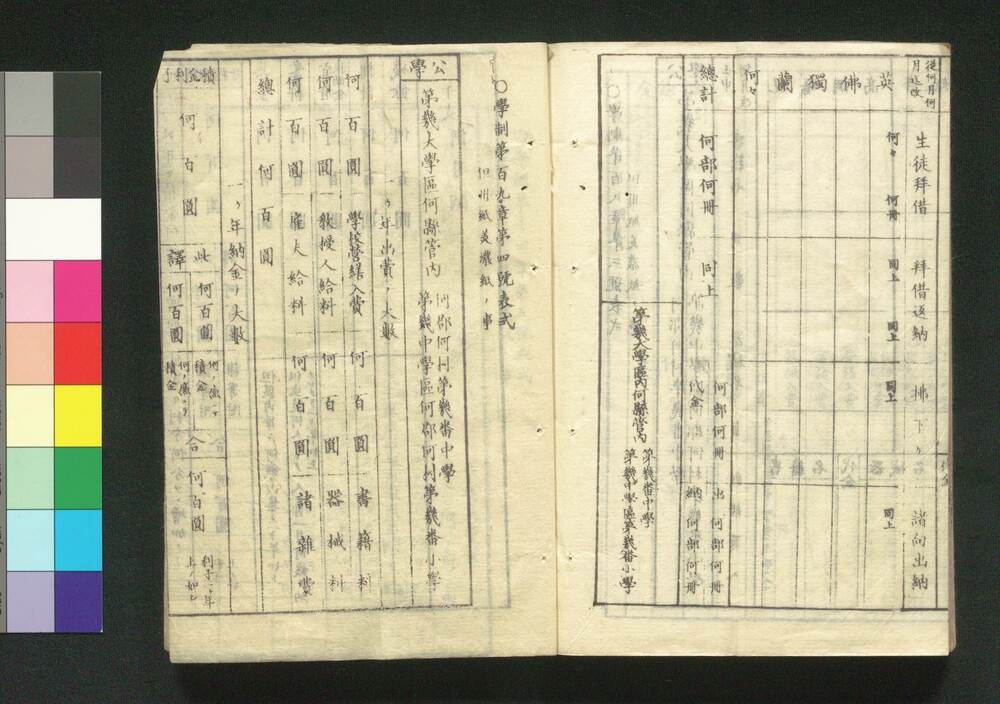 從何月何
月迄改
生徒拜借　拜借返納　拂下ケ　諸向出納
英　何々　何冊　同上　同上　同上　同上
佛
獨
蘭
何々
總計　何部何冊　同上
何部何冊　出　何部何冊
代金　納　何部何冊
第幾大學區內何縣管內
第幾番中學
第幾中學區第幾番小學
○學制第百九章第四號表式
但卅紙美濃紙ノ事
公學
第幾大學區何縣管內
何郡何村第幾番中學
第幾中學區何郡何村第幾番小學
一ヶ年出費ノ大數
何百圓　學校營繕入費　何百圓　書籍料
何百圓　敎授人給料　何百圓　器械料
何百圓　雇夫給料　何百圓　諸雜費
總計何百圓
一ヶ年納金ノ大數
積金利子
何百圓
此　何百圓
譯　何百圓
積金
積金
合　何百圓
利子ノ年
上ノ如シ